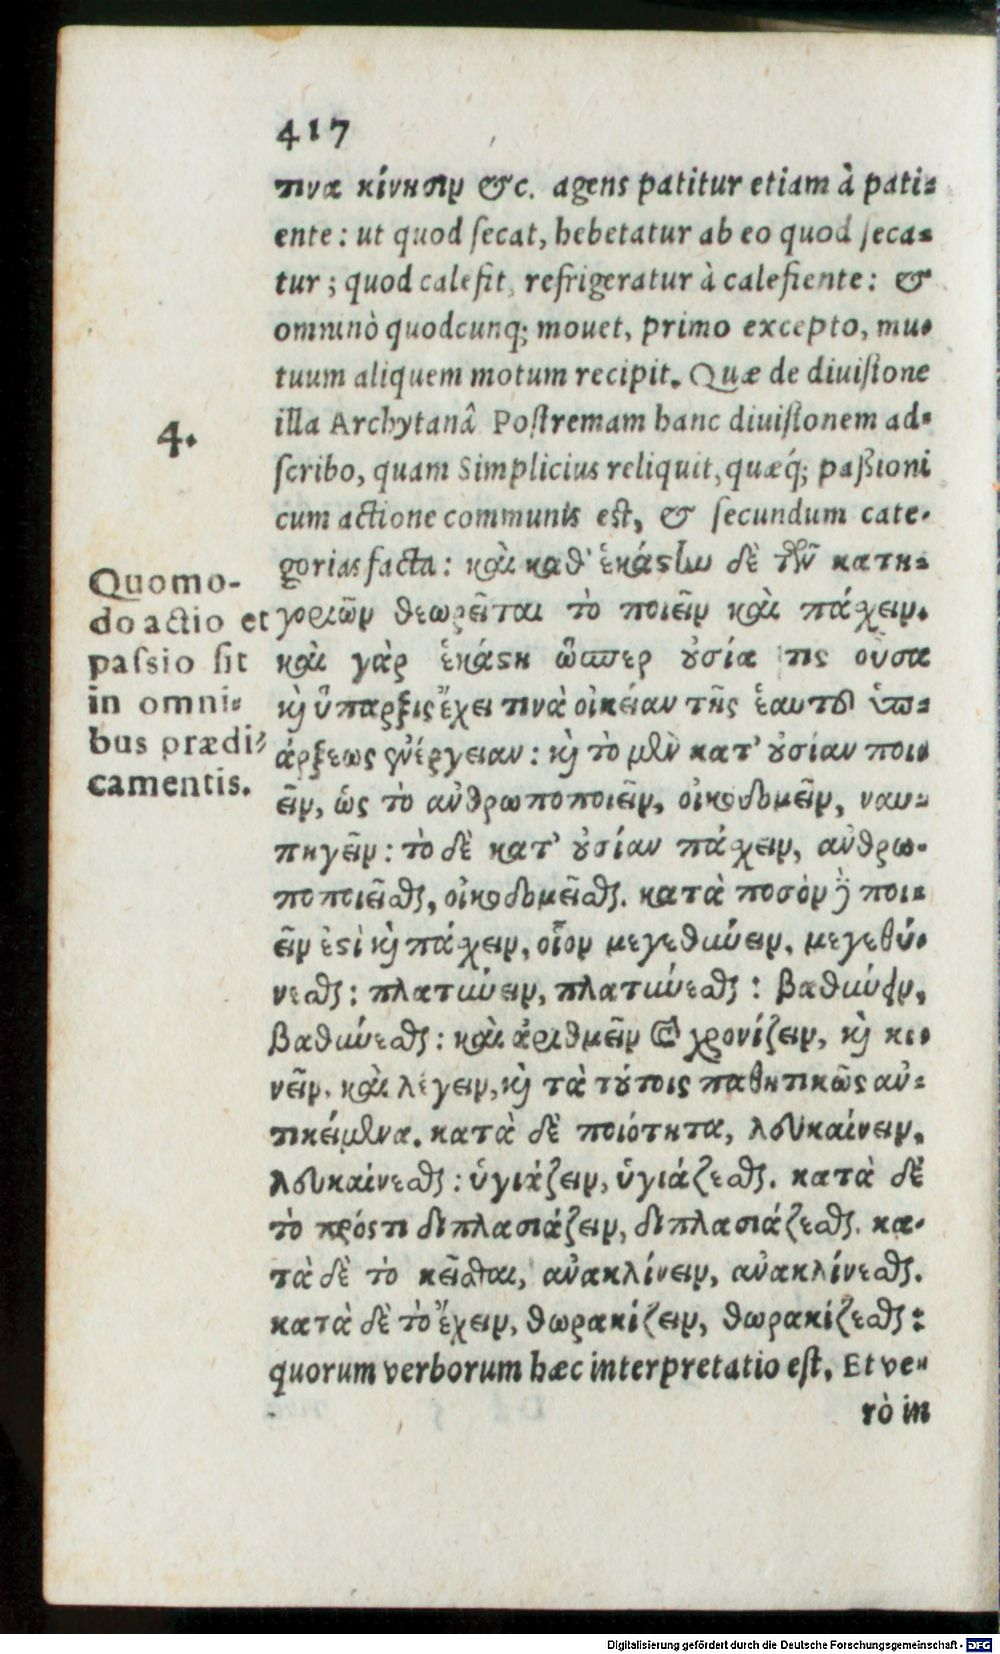 417
τινα κίνησιν &c. agens patitur etiam à pati-
ente: ut quod ſecat, hebetatur ab eo quod ſeca-
tur; quod calefit, refrigeratur à calefiente: &
omninò quodcunq; mouet, primo excepto, mu-
tuum aliquem motum recipit. Quæ de diuiſione
illa Archytanâ Poſtremam hanc diuiſionem ad-
4.
ſcribo, quam Simplicius reliquit, quæq́; paßioni
cum actione communis est, & ſecundum cate-
gorias facta: καὶ καθ' ἑκάστην δὲ τῶν κατη-
γοριῶν θεωρεῖται τὸ ποιεῖν καὶ πάχειν.
καὶ γὰρ ἑκάστη ὥσπερ οὐσία τις οὖσα
κὶ ὕπαρξις ἔχει τινὰ οἰκείαν τῆς ἑαυτοῦ ὑπ-
άρξεως ἐνέργειαν: κὶ τὸ μὲν κατ' οὐσίαν ποι-
εῖν, ὡς τὸ ἀνθρωποποιεῖν, οἰκοδομεῖν, ναυ-
πηγεῖν: τὸ δὲ κατ' οὐσίαν πάχειν, ἀνθρω-
ποποιεῖσθαι, οἰκοδομεῖσθαι. κατὰ ποσὸν δὲ ποι-
εῖν ἐστὶ κὶ πάχειν, οἷον μεγεθύνειν, μεγεθύ-
νεσθαι: πλατύνειν, πλατύνεσθαι: βαθύνειν,
βαθύνεσθαι: καὶ ἀριθμεῖν καὶ χρονίζειν, κὶ κι-
νεῖν, καὶ λέγειν, κὶ τὰ τούτοις παθητικῶς ἀν-
τικείμενα. κατὰ δὲ ποιότητα, λευκαίνειν,
λευκαίνεσθαι: ὑγιάζειν, ὑγιάζεσθαι. κατὰ δὲ
τὸ πρόστι διπλασιάζειν, διπλασιάζεσθαι. κα-
τὰ δὲ τὸ κεῖσθαι, ἀνακλίνειν, ἀνακλίνεσθαι.
κατὰ δὲ τὸ ἔχειν, θωρακίζειν, θωρακίζεσθαι:
quorum verborum hæc interpretatio eſt. Et ve-
rò in
Quomo-
do actio et
paſsio ſit
in omni-
bus prædi-
camentis.
Digitalisierung gefördert durch die Deutsche Forschungsgemeinschaft - DFG